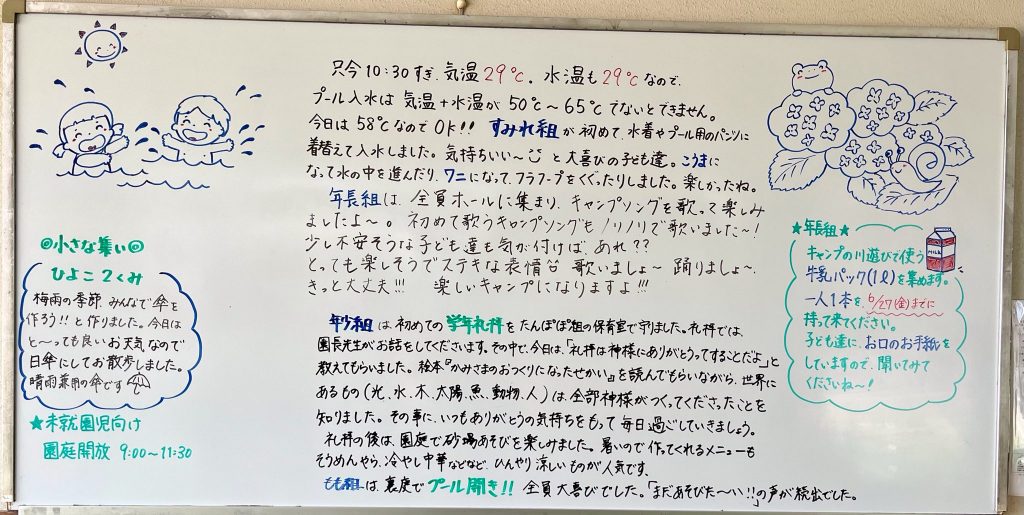 ◎小さな集い◎
ひよこ2くみ
梅雨の季節、みんなで傘を
作ろう!!と作りました。今日は
と〜っても良いお天気なので
日傘にしてお散歩しました。
晴雨兼用の傘です
★未就園児向け
園庭開放 9:00〜11:30
只今10:30すぎ、気温29℃。水温も29℃なので、
プール入水は気温+水温が50℃〜65℃でないとできません。
今日は58℃なのでOK!! すみれ組が初めて、水着やプール用のパンツに
着替えて入水しました。気持ちいい〜と大喜びの子ども達。こうまに
なって水の中を進んだり、ワニになって、フラフープをくぐったりしました。楽しかったね。
年長組は、全員ホールに集まり、キャンプソングを歌って楽しみ
ましたよ〜。初めて歌うキャンプソングもノリノリで歌いました〜!
少し不安そうな子ども達も気が付けば、あれ??
とっても楽しそうでステキな表情 歌いましょ〜 踊りましょ〜、
きっと大丈夫!!! 楽しいキャンプになりますよ!!!
年少組は、初めての学年礼拝をたんぽぽ組の保育室で守りました。礼拝では、
園長先生がお話をしてくださいます。その中で、今日は、「礼拝は神様にありがとうってすることだよ」と
教えてもらいました。絵本『かみさまのおつくりになったせかい』を読んでもらいながら、世界に
あるもの(光、水、木、太陽、魚、動物、人)は、全部神様がつくってくださったことを
知りました。その事に、いつもありがとうの気持ちをもって毎日過ごしていきましょう。
礼拝の後は、園庭で砂場あそびを楽しみました。暑いので作ってくれるメニューも
そうめんやら、冷やし中華などなど、ひんやり涼しいものが人気です。
もも組は、裏庭でプール開き!! 全員大喜びでした。「まだあそびた〜い!!」の声が続出でした。
★年長組★
キャンプの川遊びで使う
牛乳パック(1ℓ)を集めます。
一人1本を、6/27(金)までに
持って来てください。
子ども達に、お口のお手紙を
していますので、聞いてみて
くださいね〜!
MILK